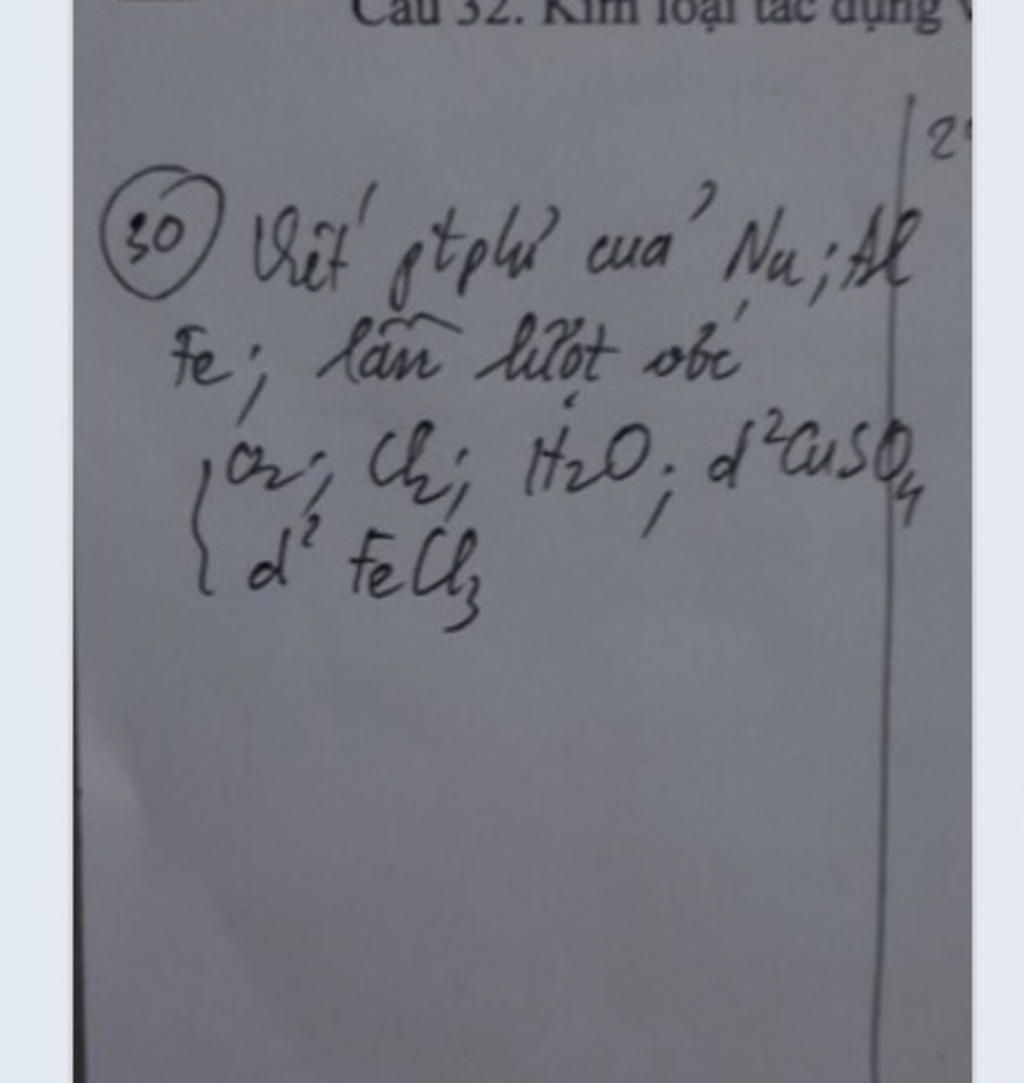 Câu 32. Kim loại tác dụng
30 Viết ptpứ của Na; Al
Fe; lần lượt với
O2; Cl2; H2O; d² CuSO4
d² FeCl3